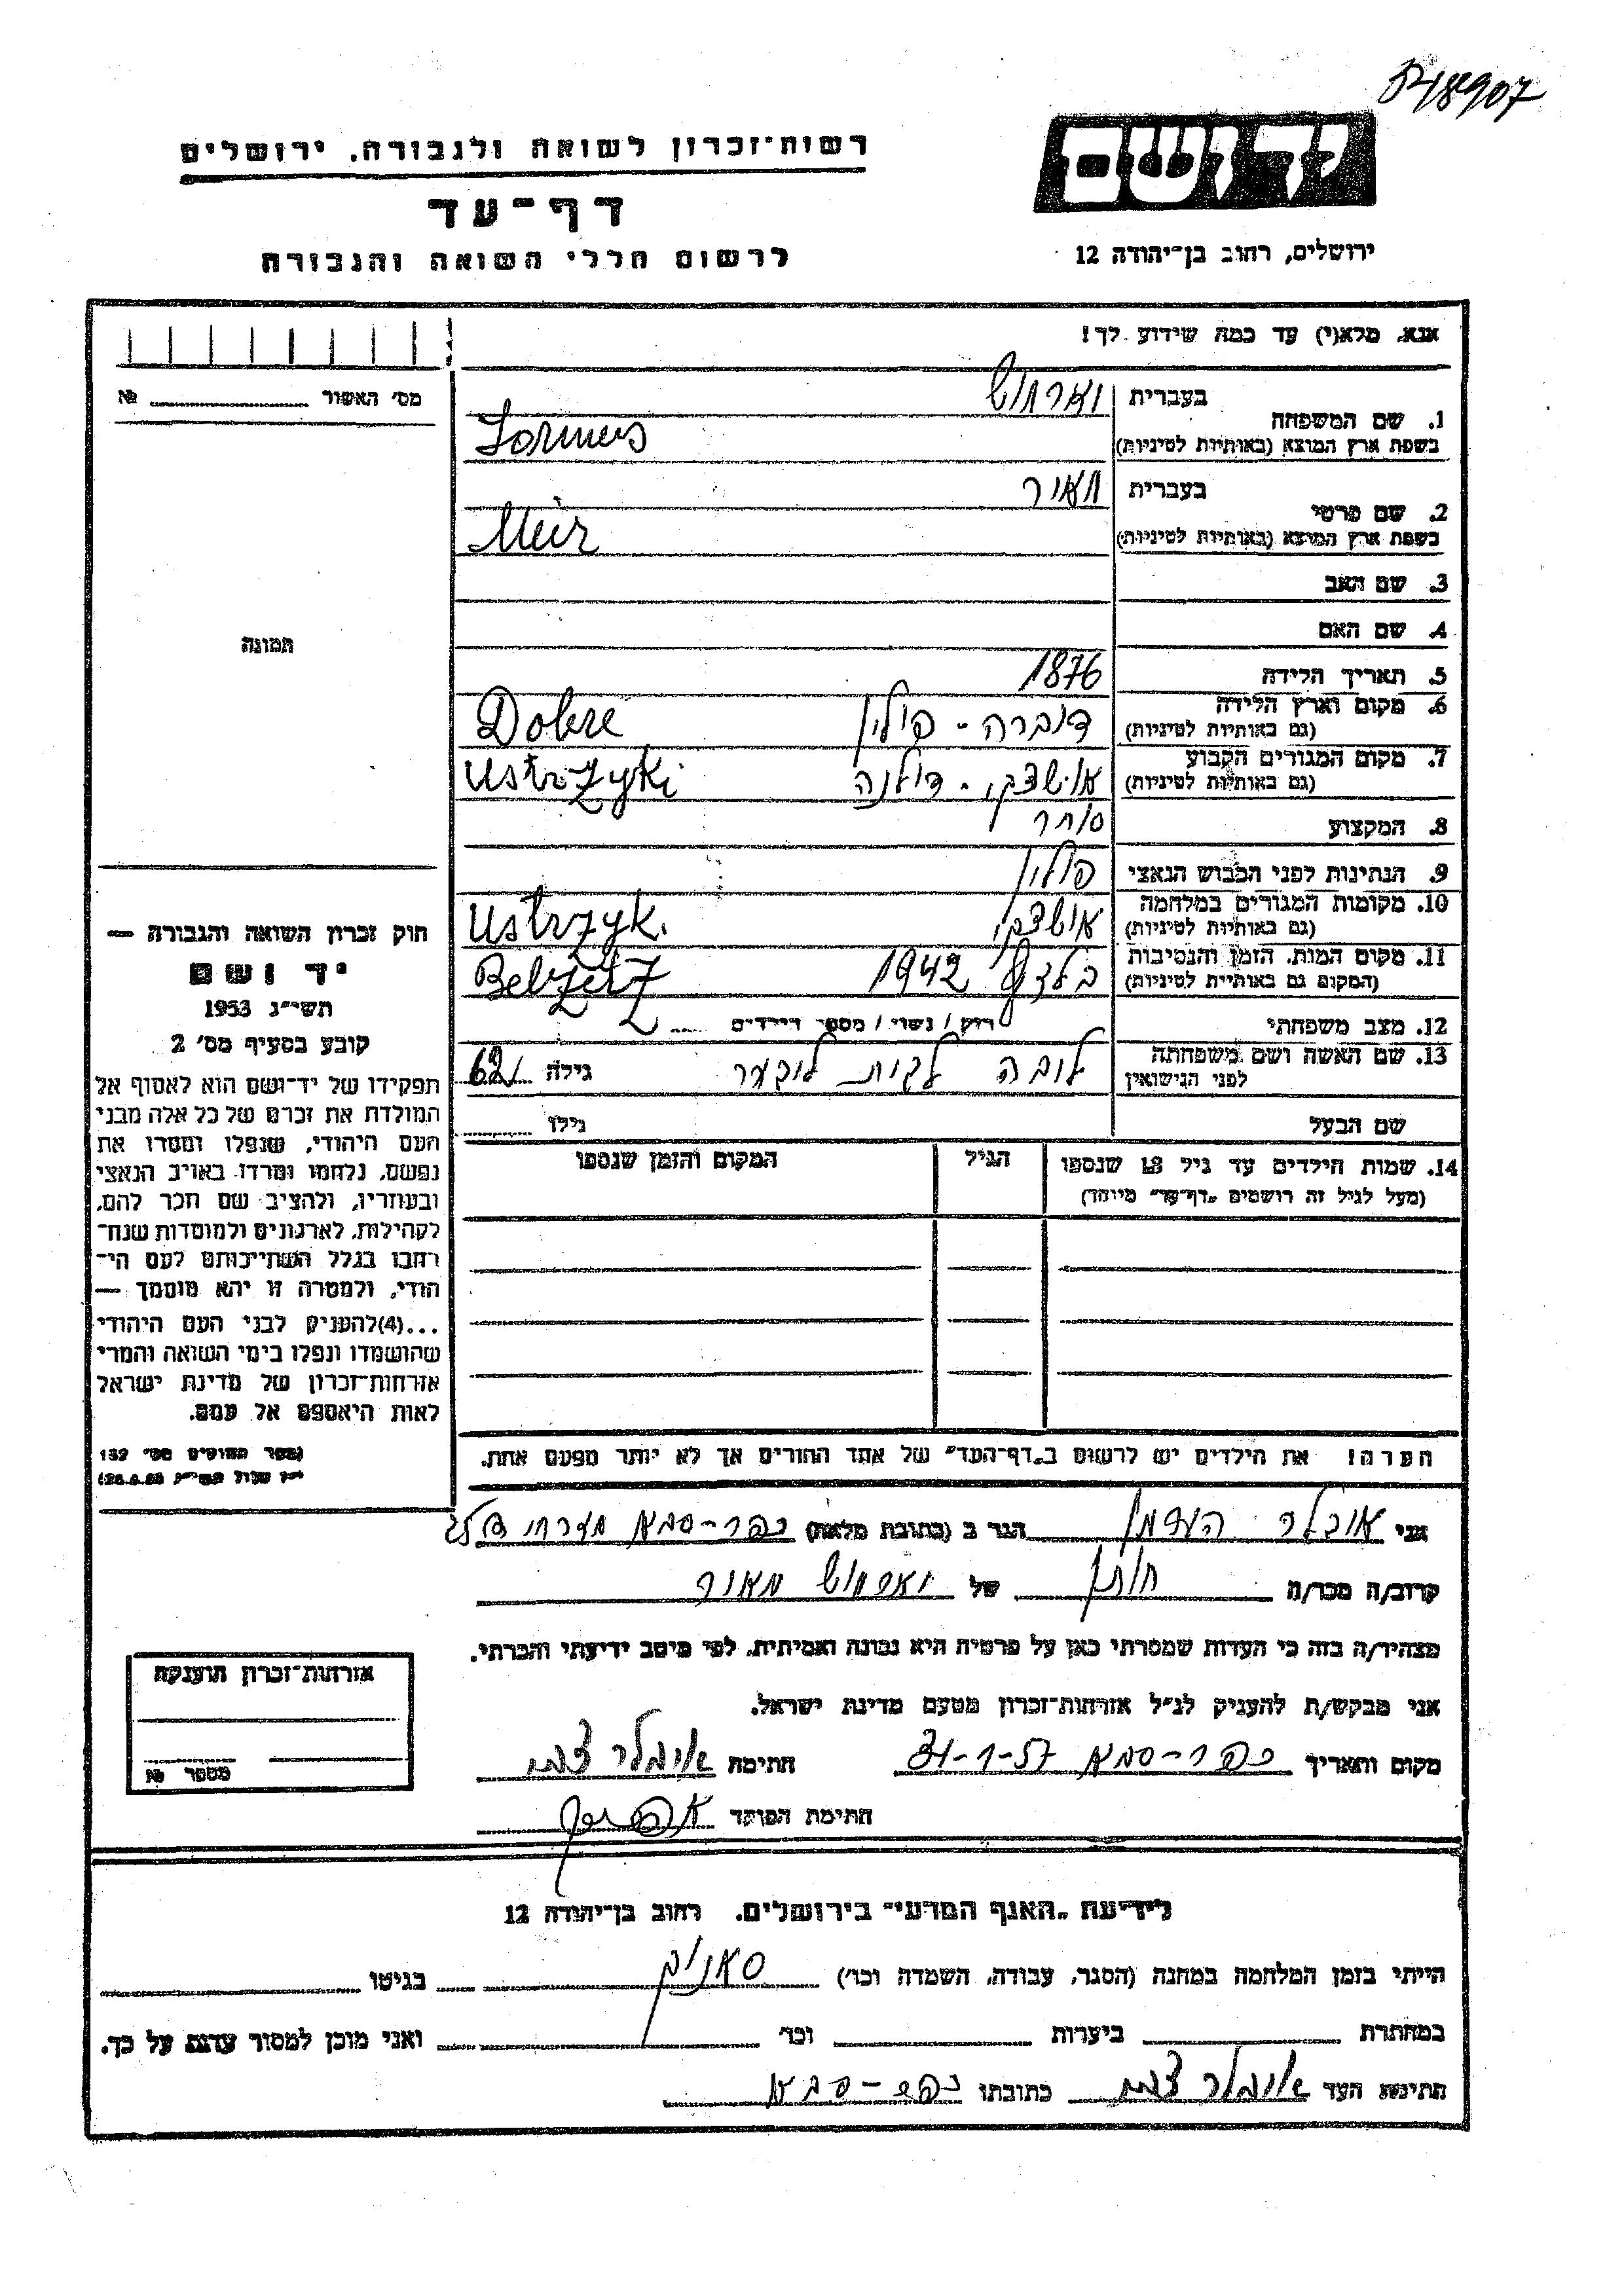 רשות־זכרון לשואה ולגבורה. ירושלים
דף־עד
לרשום חללי השואה והגבורה
יד ושם
ירושלים, רחוב בן־יהודה 12
אנא, מלא(י) עד כמה שידוע לך!
מס׳ האשור № 
1. שם המשפחה
בעברית
בשפת ארץ המוצא (באותיות לטיניות)
2. שם פרטי
בעברית מאיר
בשפת ארץ המוצא (באותיות לטיניות) Meir
3. שם האב
4. שם האם
5. תאריך הלידה 1876
6. מקום וארץ הלידה דוברה - פולין Dobre
(גם באותיות לטיניות)
7. מקום המגורים הקבוע אושצקי - דולנה Ustrzyki
(גם באותיות לטיניות)
8. המקצוע סוחר
9. הנתינות לפני הכבוש הנאצי פולין
10. מקומות המגורים במלחמה אושצקי Ustrzyki
(גם באותיות לטיניות)
11. מקום המות. הזמן והנסיבות 1942
(המקום גם באותיות לטיניות)
12. מצב משפחתי רוק / נשוי / מספר הילדים
13. שם האשה ושם משפחתה לובה לבית גילה 62
לפני הנישואין
שם הבעל גילו
14. שמות הילדים עד גיל 18 שנספו הגיל המקום והזמן שנספו
(מעל לגיל זה רושמים „דף־עד״ מיוחד)
הערה! את הילדים יש לרשום ב„דף־העד״ של אחד ההורים אך לא יותר מפעם אחת.
תמונה
חוק זכרון השואה והגבורה —
יד ושם
תשי״ג 1953
קובע בסעיף מס׳ 2
תפקידו של יד־ושם הוא לאסוף אל
המולדת את זכרם של כל אלה מבני
העם היהודי, שנפלו ומסרו את
נפשם, נלחמו ומרדו באויב הנאצי
ובעוזריו, ולהציב שם וזכר להם,
לקהילות, לארגונים ולמוסדות שנח־
רבו בגלל השתייכותם לעם הי־
הודי, ולמטרה זו יהא מוסמך —
...(4)להעניק לבני העם היהודי
שהושמדו ונפלו בימי השואה והמרי
אזרחות־זכרון של מדינת ישראל
לאות היאספם אל עמם.
(ספר החוקים מס׳ 132
אני הגר ב (כתובת מלאה) כפר-סבא
קרוב/ה מכר/ה חותן של מאיר
מצהיר/ה בזה כי העדות שמסרתי כאן על פרטיה היא נכונה ואמיתית, לפי מיטב ידיעתי והכרתי.
אני מבקש/ת להעניק לנ״ל אזרחות־זכרון מטעם מדינת ישראל.
מקום ותאריך כפר-סבא 31-1-57 חתימה
חתימת הפוקד
אזרחות־זכרון הוענקה
מספר №
לידיעת „האגף המדעי״ בירושלים. רחוב בן־יהודה 12
הייתי בזמן המלחמה במחנה (הסגר, עבודה, השמדה וכו׳) בגיטו
במחתרת ביערות וכו׳ ואני מוכן למסור עדות על כך.
חתימת העד כתובתו כפר-סבא